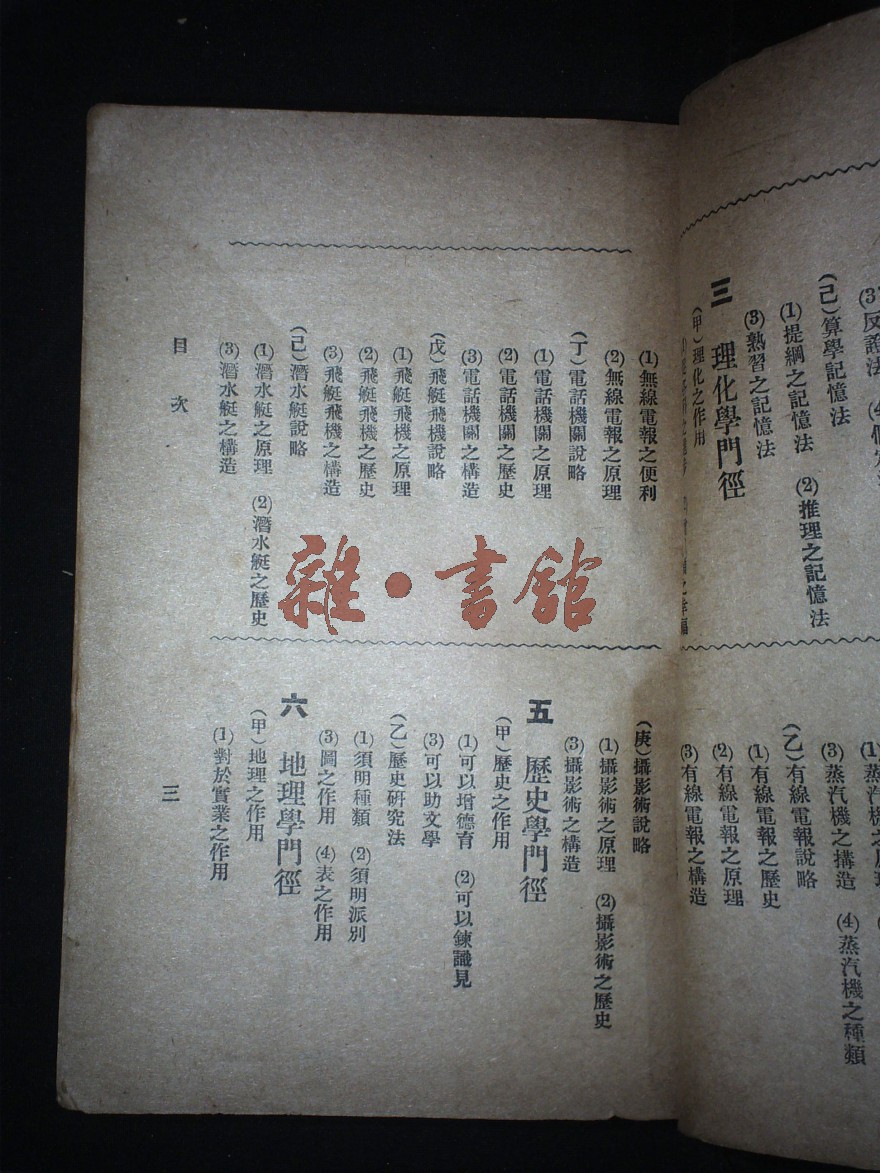 (3)反證法
(己)算學記憶法
(1)提綱之記憶法 (2)推理之記憶法
(3)熟習之記憶法
三 理化學門徑
(甲)理化之作用
(1)蒸汽機之原理
(3)蒸汽機之搆造 (4)蒸汽機之種類
(乙)有線電報說略
(1)有線電報之歷史
(2)有線電報之原理
(3)有線電報之構造
(1)無線電報之便利
(2)無線電報之原理
(丁)電話機關說略
(1)電話機關之原理
(2)電話機關之歷史
(3)電話機關之構造
(戊)飛艇飛機說略
(1)飛艇飛機之原理
(2)飛艇飛機之歷史
(3)飛艇飛機之構造
(己)潛水艇說略
(1)潛水艇之原理 (2)潛水艇之歷史
(3)潛水艇之構造
(庚)攝影術說略
(1)攝影術之原理 (2)攝影術之歷史
(3)攝影術之構造
五 歷史學門徑
(甲)歷史之作用
(1)可以增德育 (2)可以鍊識見
(3)可以助文學
(乙)歷史研究法
(1)須明種類 (2)須明派別
(3)圖之作用 (4)表之作用
六 地理學門徑
(甲)地理之作用
(1)對於實業之作用
目次
三
雜·書館